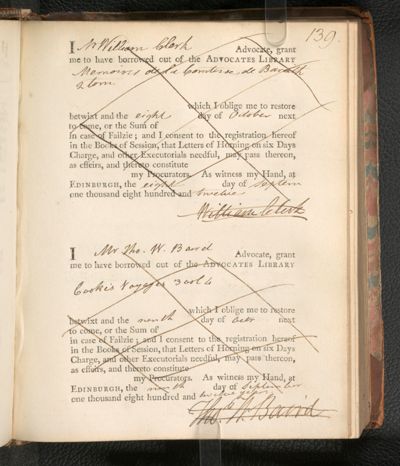 139.
I Mr William Clerk Advocate, grant
me to have borrowed out of the ADVOCATES LIBRARY
Memoires de la Comtesse de
2 tom
which I oblige me to restore
betwixt and the eight day of October next
to come, or the Sum of
in case of Failzie; and I consent to the registration hereof
in the Books of Session, that Letters of Horning on six Days
Charge, and other Executorials needful, may pass thereon,
as effeirs, and thereto constitute
my Procurators. As witness my Hand, at
EDINBURGH, the eight day of Septem
one thousand eight hundred and twelve
William Clerk
I Mr Tho. W. Baird Advocate, grant
me to have borrowed out of the ADVOCATES LIBRARY
Cook's Voyages 3 vol 4
which I oblige me to restore
betwixt and the ninth day of next
to come, or the Sum of
in case of Failzie; and I consent to the registration hereof
in the Books of Session, that Letters of Horning on six Days
Charge, and other Executorials needful, may pass thereon,
as effeirs, and thereto constitute
my Procurators. As witness my Hand, at
EDINBURGH, the ninth day of September
one thousand eight hundred and twelve years
Tho. W. Baird